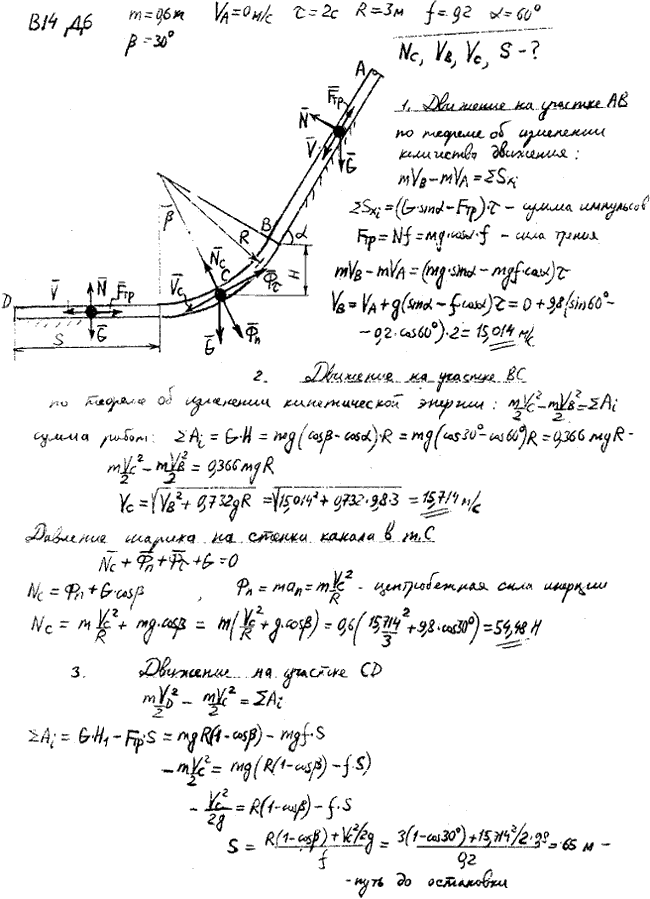 В14 Д6 m=0,6т V_A=0м/с τ=2с R=3м f=0,2 α=60°
β=30°
N_C, V_B, V_C, S-?
A
F̄тр
N̄
V̄
Ḡ
1. Движение на участке AB
по теореме об изменении
количества движения:
mV_B-mV_A=ΣS_xi
ΣS_xi=(G·sinα-Fтр)·τ - сумма импульсов
Fтр=Nf=mg·cosα·f - сила трения
mV_B-mV_A=(mg·sinα-mgf·cosα)τ
V_B=V_A+g(sinα-f·cosα)τ=0+9,8(sin60°-
-0,2·cos60°)·2=15,014 м/с
β
R
B
α
H
N̄_C
C
V̄_C
Φ̄τ
Φ̄n
Ḡ
D
V̄
N̄
F̄тр
Ḡ
S
2. Движение на участке BC
по теореме об изменении кинетической энергии: mV_C²/2-mV_B²/2=ΣA_i
сумма работ: ΣA_i=G·H=mg(cosβ-cosα)·R=mg(cos30°-cos60°)R=0,366 mgR-
mV_C²/2-mV_B²/2=0,366mgR
V_C=√(V_B²+0,732gR)=√(15,014²+0,732·9,8·3)=15,714 м/с
Давление шарика на стенки канала в т.C
N̄_C+Φ̄n+Φ̄τ+G=0
N_C=Φn+G·cosβ , Φn=ma_n=mV_C²/R - центробежная сила инерции
N_C=mV_C²/R+mg·cosβ=m(V_C²/R+g·cosβ)=0,6(15,714²/3+9,8·cos30°)=54,48 Н
3. Движение на участке CD
mV_D²/2-mV_C²/2=ΣA_i
ΣA_i=G·H₁-Fтр·S=mgR(1-cosβ)-mgf·S
-mV_C²/2=mg(R(1-cosβ)-f·S)
-V_C²/2g=R(1-cosβ)-f·S
S=(R(1-cosβ)+V_C²/2g)/f=(3(1-cos30°)+15,714²/2·9,8)/0,2=65 м-
-путь до остановки